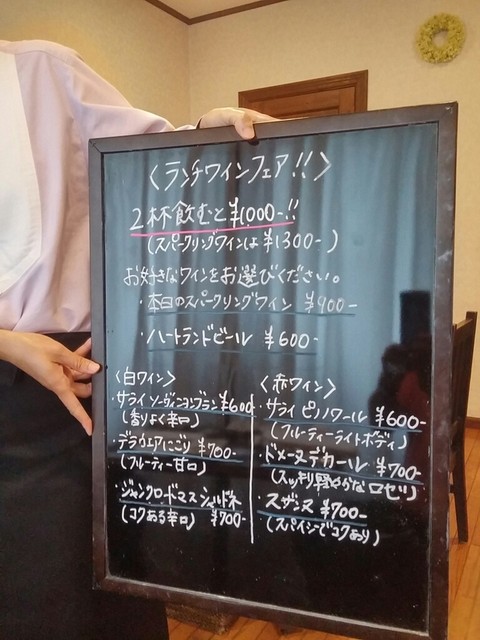 〈ランチワインフェア!!〉
2杯飲むと¥1,000-!!
(スパークリングワインは¥1300-)
お好きなワインをお選びください。
・本日のスパークリングワイン ¥900-
・ハートランドビール ¥600-
〈白ワイン〉
・サライ ソーヴィニヨンブラン ¥600
(香りよく辛口)
・デラウェアにごり ¥700-
(フルーティー甘口)
・ジャンクロードマス シャルドネ
(コクある辛口) ¥700-
〈赤ワイン〉
・サライ ピノノワール ¥600-
(フルーティーライトボディ)
・ドメーヌデカール ¥700-
(スッキリ軽やかな ロゼ)
・スザンヌ ¥700-
(スパイシーでコクあり)